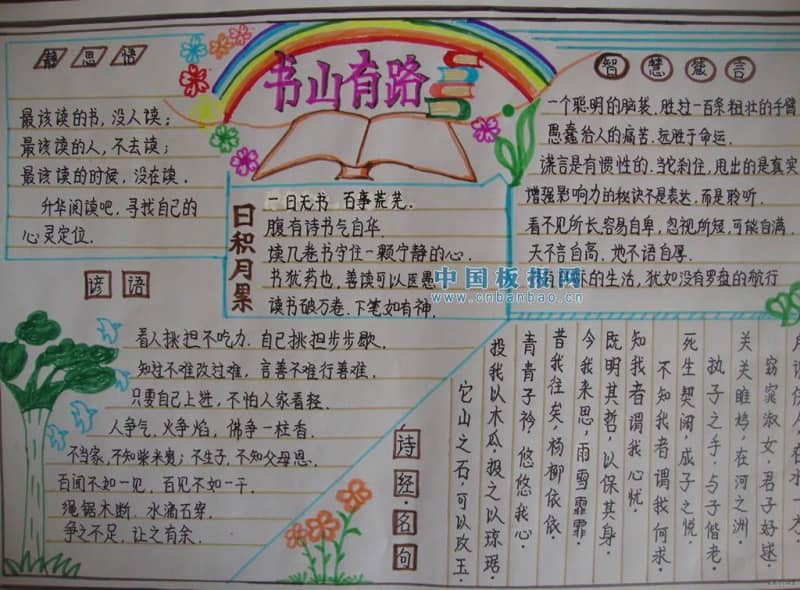 静思悟
最该读的书，没人读；
最该读的人，不去读；
最该读的时候，没在读．
升华阅读吧，寻找自己的
心灵定位．
书山有路
智慧箴言
一个聪明的脑袋，胜过一百条粗壮的手臂
愚蠢给人的痛苦．远胜于命运．
谎言是有惯性的．当它刹住，甩出的是真实
增强影响力的秘诀不是表达，而是聆听．
看不见所长，容易自卑，忽视所短，可能自满．
天不言自高，地不语自厚．
的生活，犹如没有罗盘的航行
日积月累
一日无书 百事荒芜．
腹有诗书气自华．
读几卷书守住一颗宁静的心．
书犹药也，善读可以医愚
读书破万卷．下笔如有神．
中国板报网
www.cnbanbao.cn
谚语
看人挑担不吃力．自己挑担步步歇．
知过不难改过难，言善不难行善难．
只要自己上进，不怕人家看轻．
人争气，火争焰，佛争一柱香．
不当家，不知柴米贵；不生子，不知父母恩．
百闻不如一见，百见不如一干．
绳锯木断，水滴石穿．
争之不足，让之有余．
诗经·名句
窈窕淑女，君子好逑．
关关雎鸠，在河之洲．
执子之手，与子偕老．
死生契阔，成子之悦．
不知我者谓我何求．
知我者谓我心忧．
既明其哲，以保其身．
今我来思，雨雪霏霏
昔我往矣，杨柳依依．
青青子衿，悠悠我心．
投我以木瓜，报之以琼琚．
它山之石，可以攻玉．